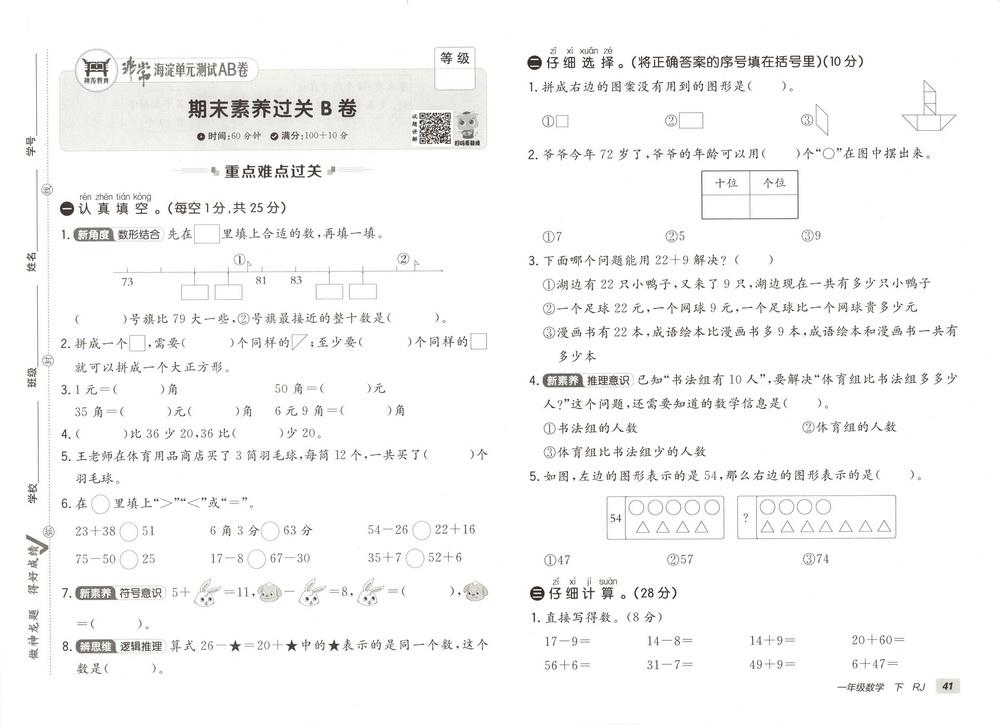 学号
姓名
班级
学校
线
封
密
做神龙题 得好成绩
神龙教育
非常 海淀单元测试AB卷
等级
期末素养过关 B 卷
时间:60分钟 满分:100+10分
试题讲解
扫码看视频
重点难点过关
rèn zhēn tián kòng
一 认真填空。(每空1分,共25分)
1. 新角度 数形结合 先在 里填上合适的数,再填一填。
① ②
73 81 83
( )号旗比79大一些,②号旗最接近的整十数是( )。
2. 拼成一个 ,需要( )个同样的 ;至少要( )个同样的
就可以拼成一个大正方形。
3. 1元=( )角 50角=( )元
35角=( )元( )角 6元9角=( )角
4. ( )比36少20,36比( )少20。
5. 王老师在体育用品商店买了3筒羽毛球,每筒12个,一共买了( )个
羽毛球。
6. 在○里填上“>”“<”或“=”。
23+38○51 6角3分○63分 54-26○22+16
75-50○25 17-8○67-30 35+7○52+6
7. 新素养 符号意识 5+ =11, - =8, =( ),
=( )。
8. 辨思维 逻辑推理 算式26-★=20+★中的★表示的是同一个数,这个
数是( )。
zǐ xì xuǎn zé
二 仔细选择。(将正确答案的序号填在括号里)(10分)
1. 拼成右边的图案没有用到的图形是( )。
①□ ② ③
2. 爷爷今年72岁了,爷爷的年龄可以用( )个“○”在图中摆出来。
十位 个位
①7 ②5 ③9
3. 下面哪个问题能用22+9解决?( )
①湖边有22只小鸭子,又来了9只,湖边现在一共有多少只小鸭子
②一个足球22元,一个网球9元,一个足球比一个网球贵多少元
③漫画书有22本,成语绘本比漫画书多9本,成语绘本和漫画书一共有
多少本
4. 新素养 推理意识 已知“书法组有10人”,要解决“体育组比书法组多多少
人?”这个问题,还需要知道的数学信息是( )。
①书法组的人数 ②体育组的人数
③体育组比书法组少的人数
5. 如图,左边的图形表示的是54,那么右边的图形表示的是( )。
54 ?
①47 ②57 ③74
zǐ xì jì suàn
三 仔细计算。(28分)
1. 直接写得数。(8分)
17-9= 14-8= 14+9= 20+60=
56+6= 31-7= 49+9= 6+47=
一年级数学 下 RJ 41